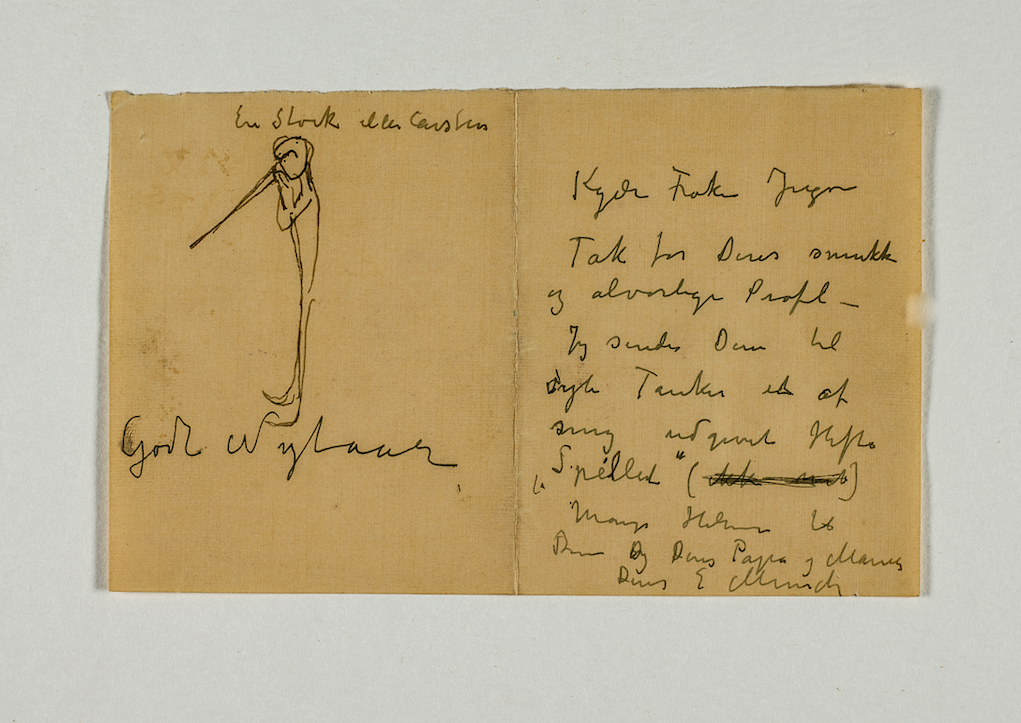 En Stork eller Carsten
Godt Nytaar
Kjære Frøken Inger
Tak for Deres smukke
og alvorlige Profil –
Jeg sender Dem til
Tanker et af
mig udgivet Hefte
„Spillet" (
Mange Hilsner til
Dem og Deres Papa og Mama
Deres E Munch.